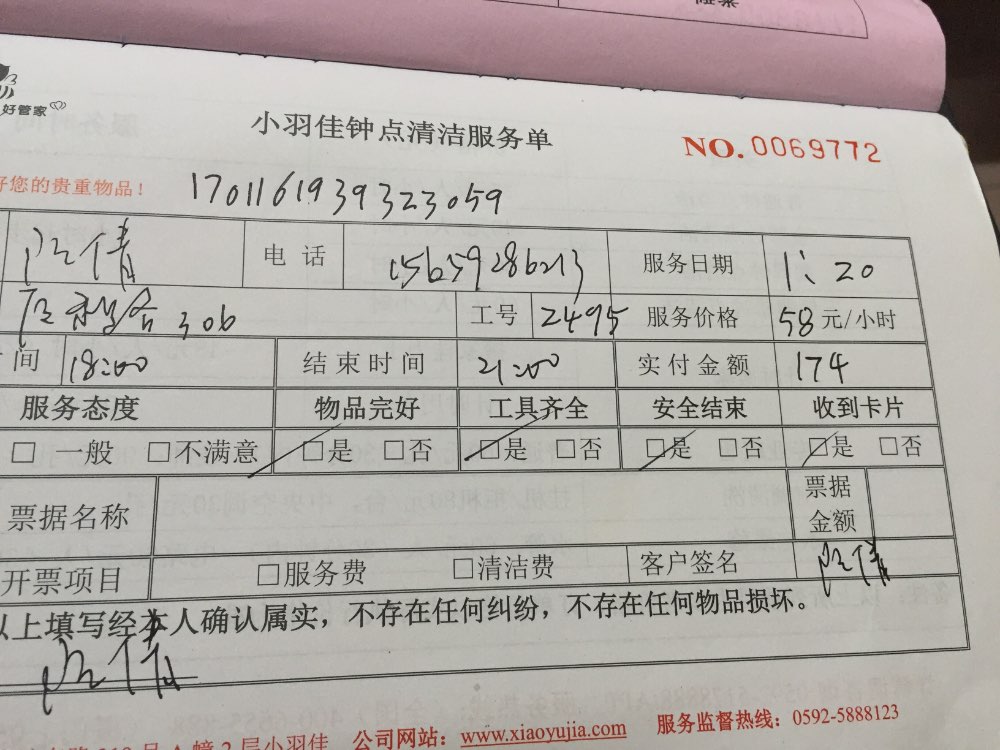 好管家
小羽佳钟点清洁服务单
NO. 0069772
好您的贵重物品！
1701161939323059
电 话 15659286213 服务日期 1: 20
306 工号 2495 服务价格 58 元/小时
间 18:00 结束时间 21:00 实付金额 174
服务态度 物品完好 工具齐全 安全结束 收到卡片
□ 一般 □不满意 □是 □否 □是 □否 □是 □否 □是 □否
票据名称 票据金额
开票项目 □服务费 □清洁费 客户签名
以上填写经本人确认属实，不存在任何纠纷，不存在任何物品损坏。
2层小羽佳 公司网站：www.xiaoyujia.com 服务监督热线：0592-5888123